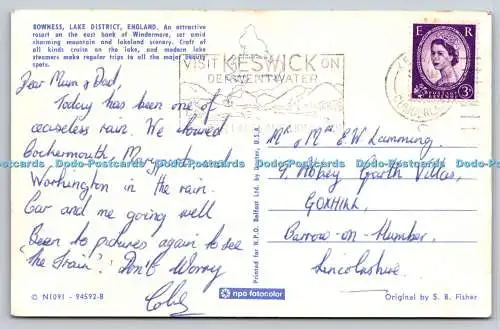 BOWNESS, LAKE DISTRICT, ENGLAND. An attractive
resort on the east bank of Windermere, set amid
charming mountain and lakeland scenery. Craft of
all kinds cruise on the lake, and modern lake
steamers make regular trips to all the major beauty
spots.
Dear Mum & Dad,
Today has been one of
ceaseless rain. We toured
Cockermouth, Maryport and
Workington in the rain.
Car and me going well
Been to pictures again to see
"the Train". Don't Worry
VISIT KESWICK ON
DERWENTWATER
E R
POSTAGE REVENUE
3D
Mr & Mrs E.W Lamming,
9. Abbey Garth Villas,
GOXHILL,
Barrow-on-Humber,
Lincolnshire.
Printed for N.P.O. Belfast Ltd. by Dexter, U.S.A.
© N1091 - 94592-B
npo fotocolor
Original by S. R. Fisher
Dodo-Postcards Dodo-Postcards Dodo-Postcards Dodo-Postcards